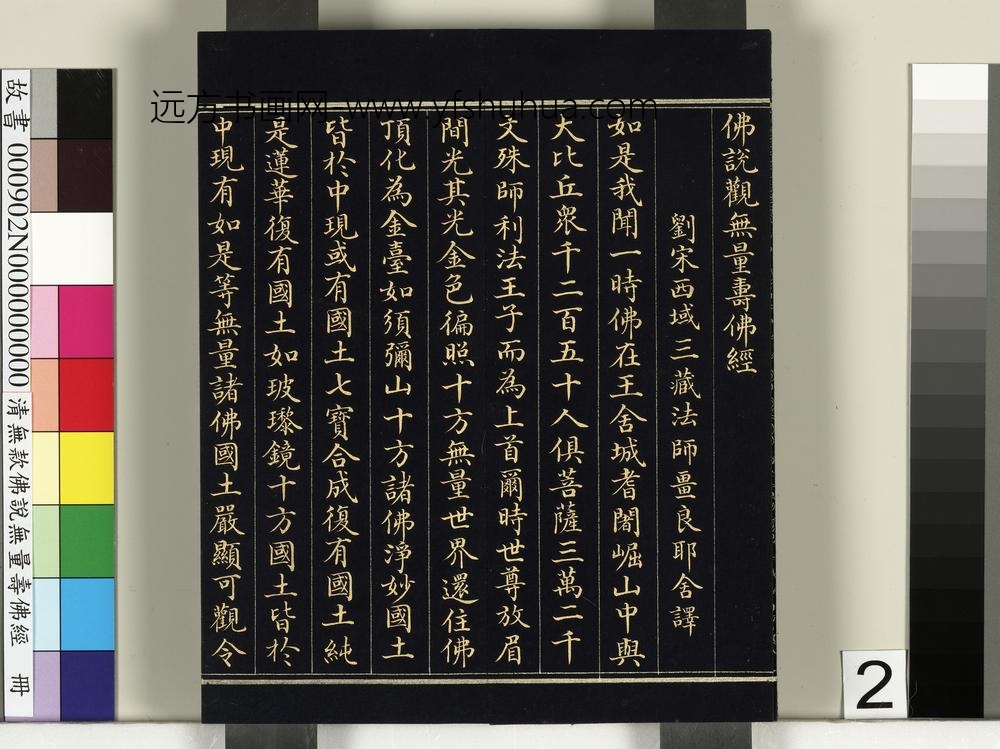 佛說觀無量壽佛經
劉宋西域三藏法師畺良耶舍譯
如是我聞一時佛在王舍城耆闍崛山中與
大比丘衆千二百五十人俱菩薩三萬二千
文殊師利法王子而為上首爾時世尊放眉
間光其光金色徧照十方無量世界還住佛
頂化為金臺如須彌山十方諸佛淨妙國土
皆於中現或有國土七寶合成復有國土純
是蓮華復有國土如玻瓈鏡十方國土皆於
中現有如是等無量諸佛國土嚴顯可觀令
远方书画网 www.yfshuhua.com
故書 000902N000000000 清無款佛說無量壽佛經 冊
2